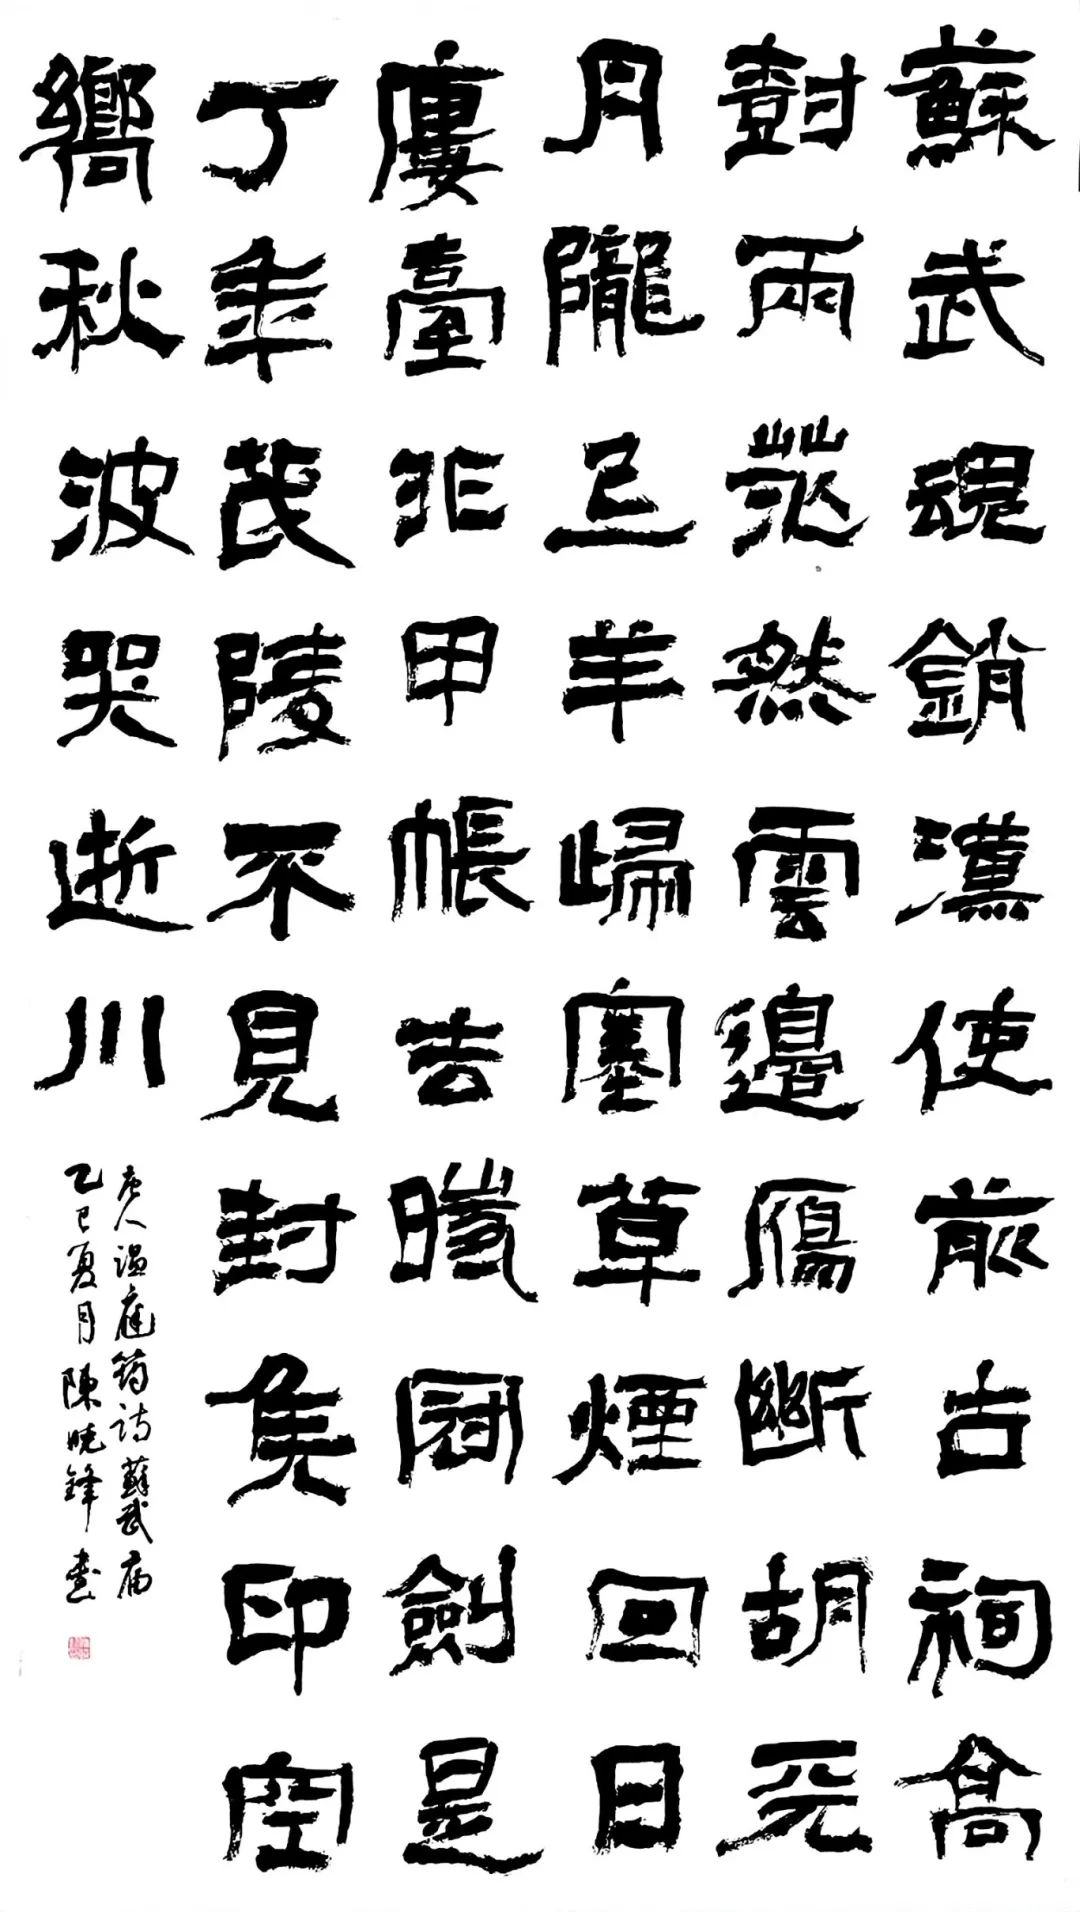 蘇武魂銷漢使前古祠高
樹兩茫然雲邊鴈斷胡天
月隴上羊歸塞草煙回日
廔臺非甲帳去時冠劍是
丁年茂陵不見封侯印空
嚮秋波哭逝川
唐人溫庭筠詩蘇武廟
乙巳夏月陳曉鋒書